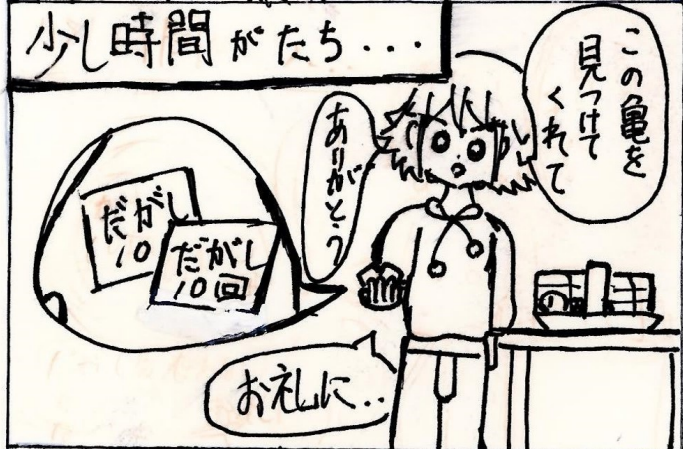 少し時間がたち...
この亀を
見つけて
くれて
ありがとう
お礼に..
だがし
10
だがし
10回